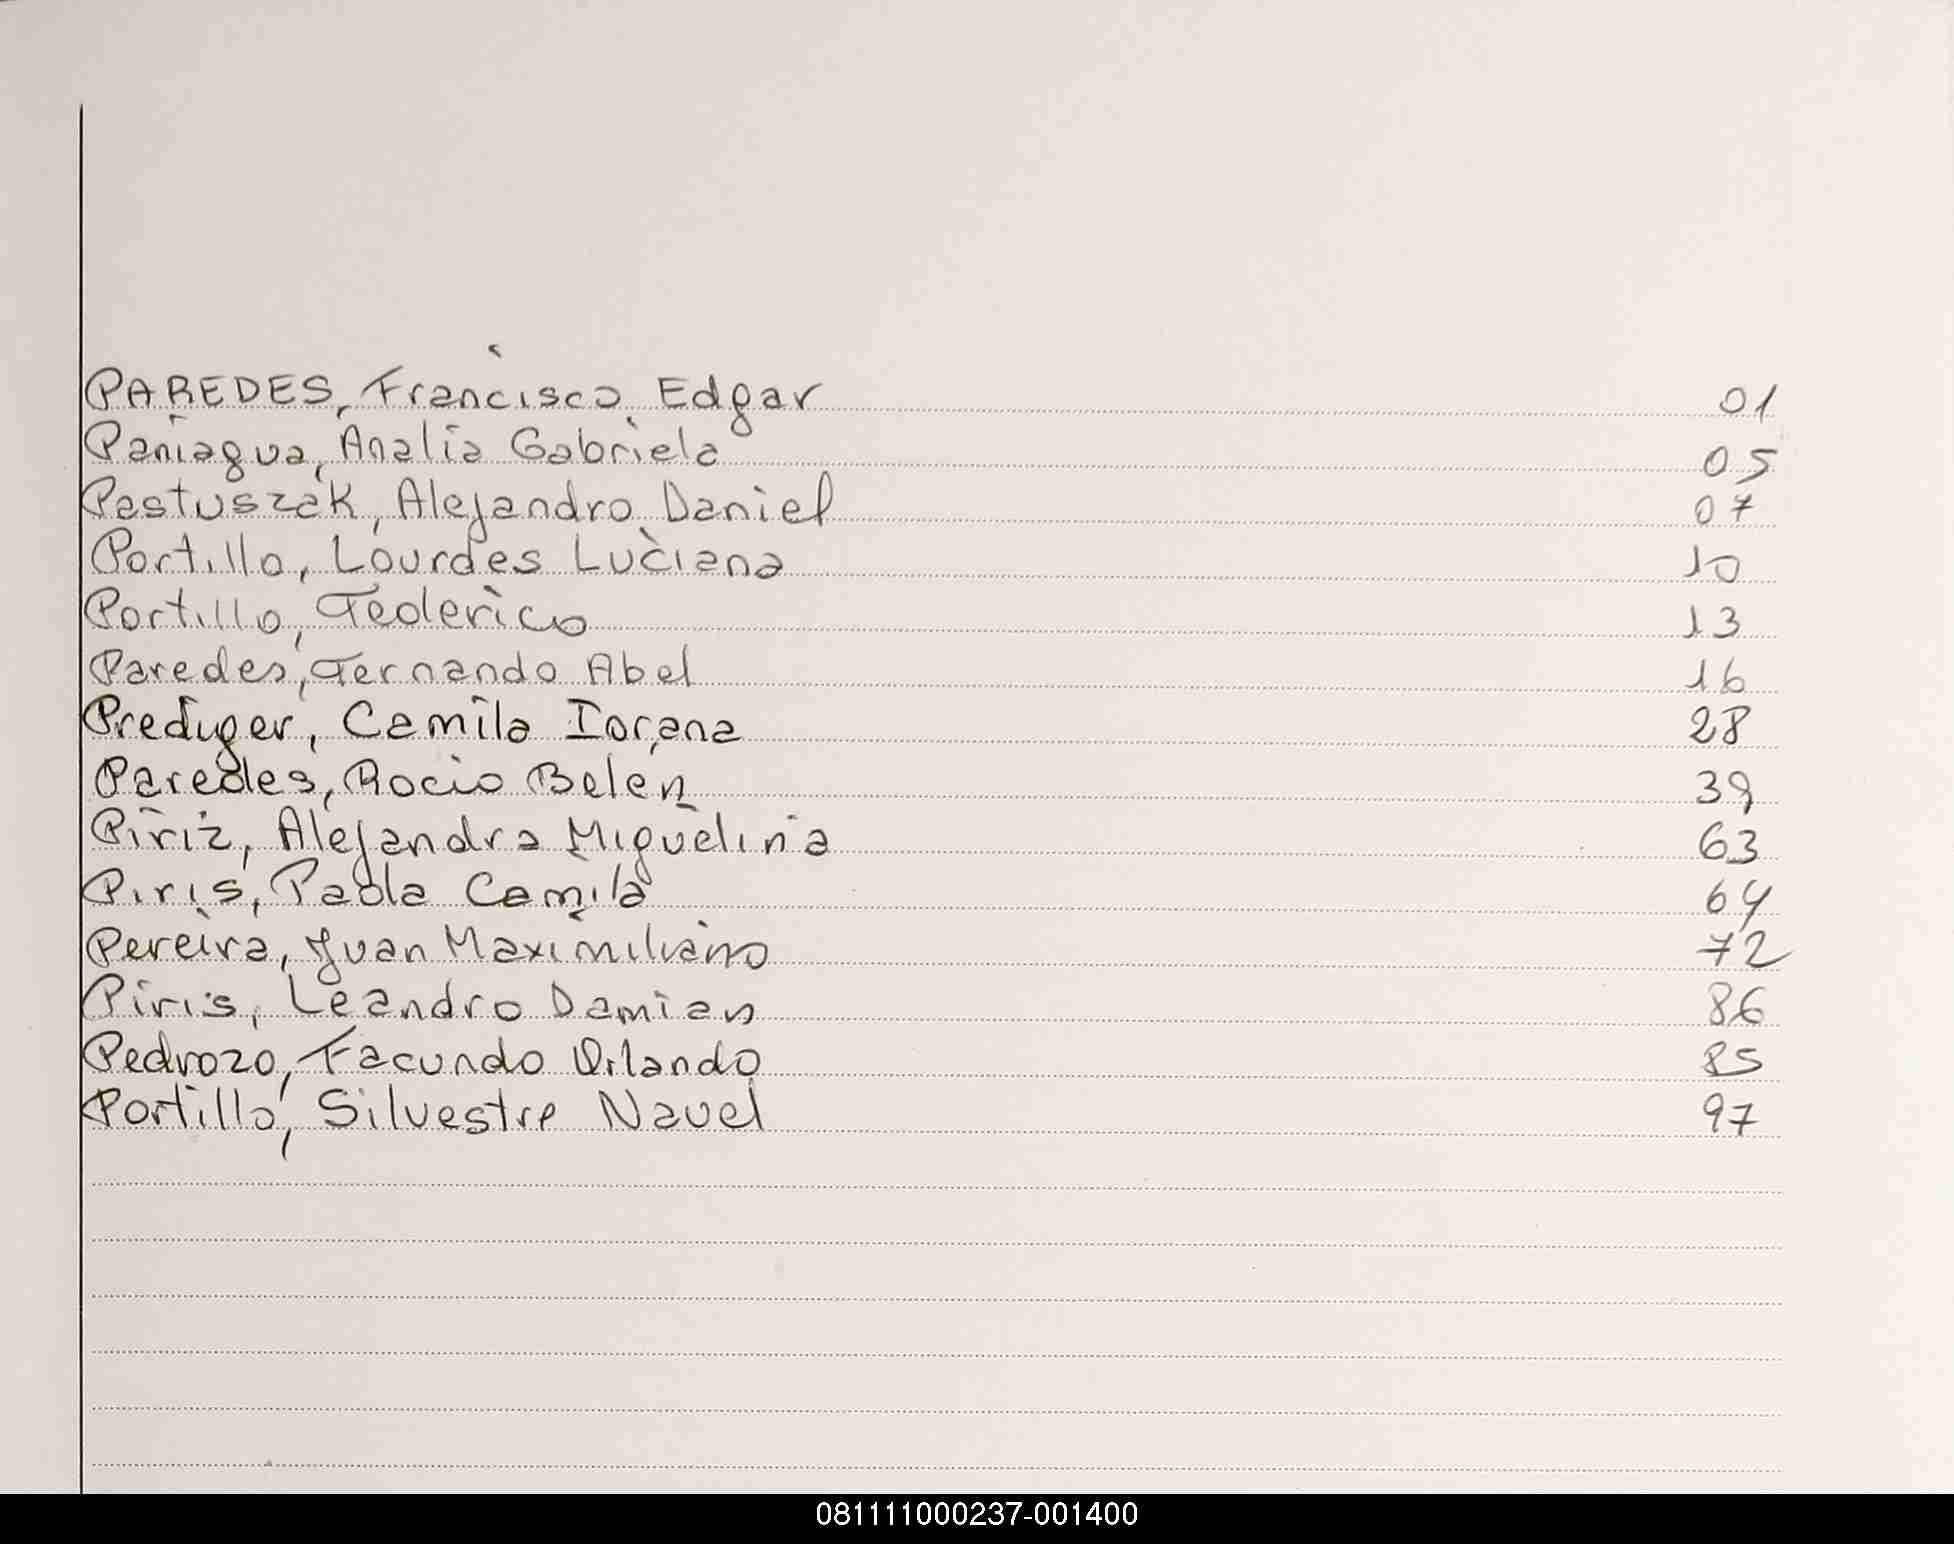 PAREDES, Francisco Edgar 01
Paniagua, Analia Gabriela 05
Pastuszak, Alejandro Daniel 07
Portillo, Lourdes Luciana 10
Portillo, Federico 13
Paredes, Fernando Abel 16
Prediger, Camila Iorana 28
Paredes, Rocio Belen 39
Piriz, Alejandra Miguelina 63
Piris, Paola Camila 64
Pereira, Juan Maximiliano 72
Piris, Leandro Damian 86
Pedrozo, Facundo Orlando 85
Portillo, Silvestre Nauel 97
081111000237-001400